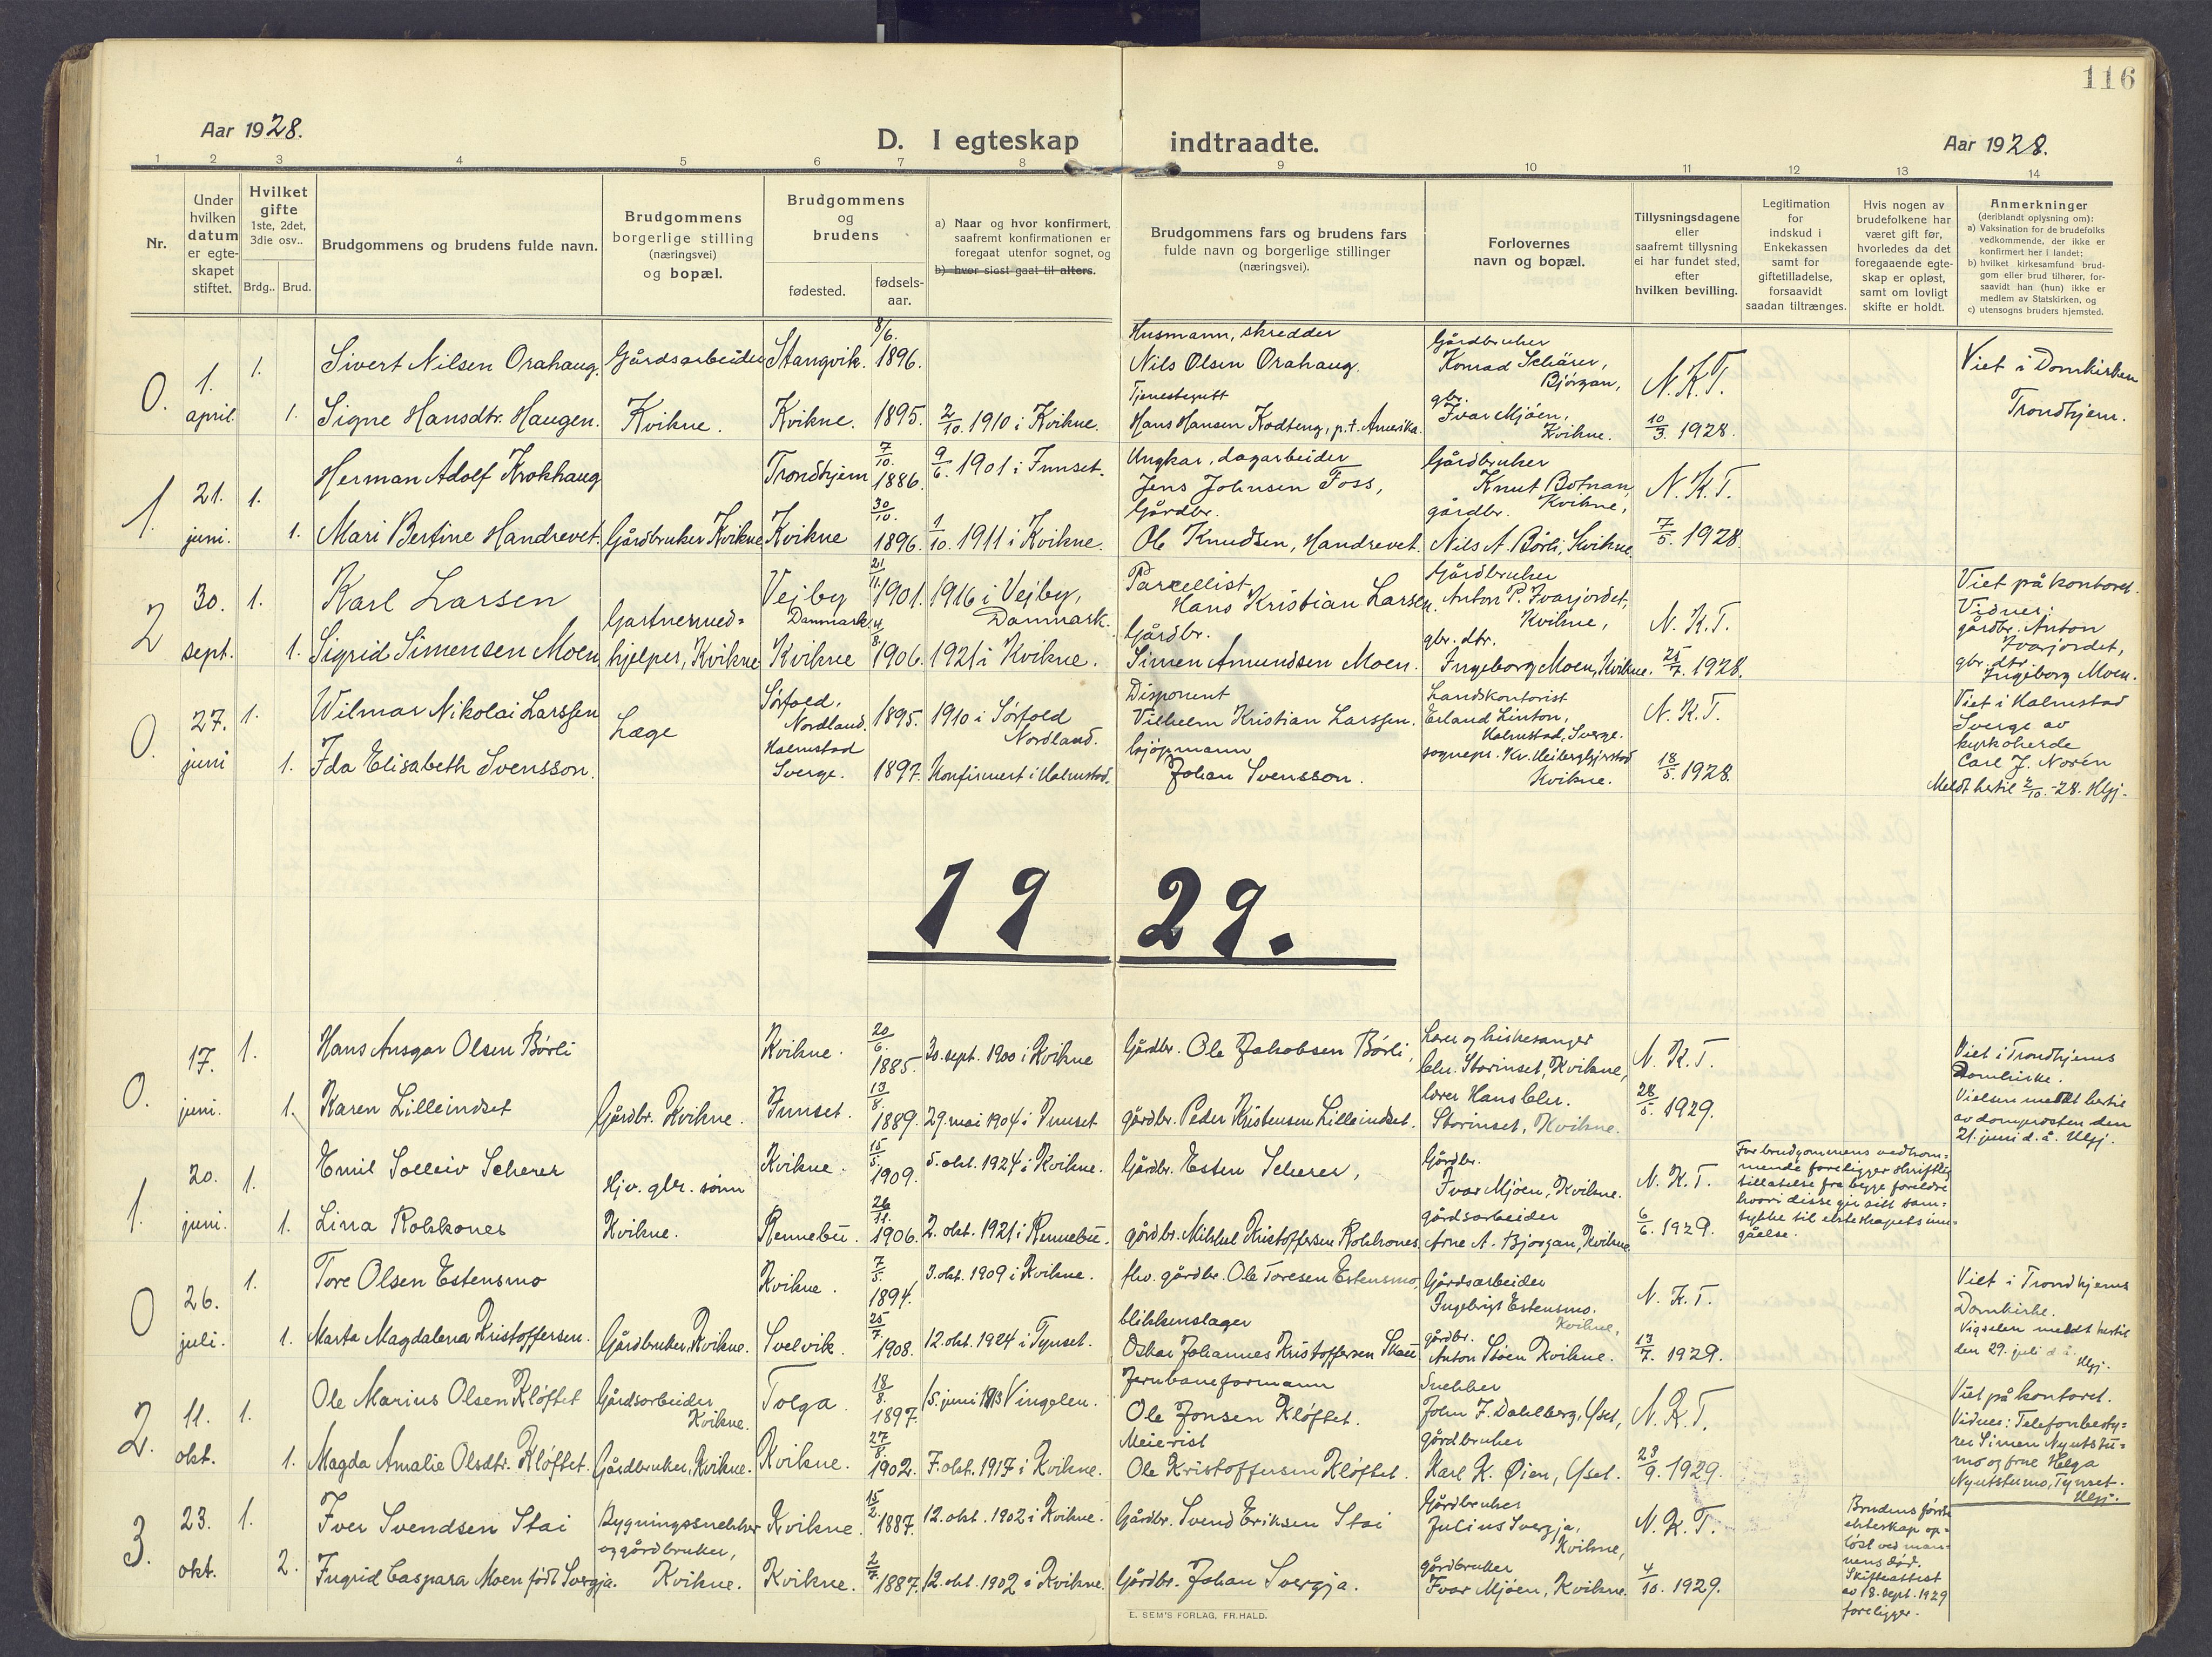 116
Aar 1928.
D. I egteskap indtraadte.
Aar 1928.
1 2 3 4 5 6 7 8 9 10 11 12 13 14
Nr.
Under
hvilken
datum
er egte-
skapet
stiftet.
Hvilket
gifte
1ste, 2det,
3die osv..
Brdg.. Brud.
Brudgommens og brudens fulde navn.
Brudgommens
borgerlige stilling
(næringsvei)
og bopæl.
Brudgommens
og
brudens
fødested.
fødsels-
aar.
a) Naar og hvor konfirmert,
saafremt konfirmationen er
foregaat utenfor sognet, og
b) hvor sidst gaat til alters.
Brudgommens fars og brudens fars
fulde navn og borgerlige stillinger
(næringsvei).
Forlovernes
navn og bopæl.
Tillysningsdagene
eller
saafremt tillysning
ei har fundet sted,
efter
hvilken bevilling.
Legitimation
for
indskud i
Enkekassen
samt for
giftetilladelse,
forsaavidt
saadan tiltrænges.
Hvis nogen av
brudefolkene har
været gift før,
hvorledes da det
foregaaende egte-
skap er opløst,
samt om lovligt
skifte er holdt.
Anmerkninger
(deriblandt oplysning om):
a) Vaksination for de brudefolks
vedkommende, der ikke er
konfirmert her i landet;
b) hvilket kirkesamfund brud-
gom eller brud tilhører, for-
saavidt han (hun) ikke er
medlem av Statskirken, og
c) utensogns bruders hjemsted.
0.
1.
april
1.
1.
Sivert Nilsen Orahaug.
Signe Hansdtr. Haugen.
Gårdsarbeider
Kvikne.
Stangvik.
Kvikne.
8/6.
1896.
1895.
2/10. 1910 i Kvikne.
Husmann, skredder
Nils Olsen Orahaug.
Tjenestegutt
Hans Hansen Kodteng, p.t. Amerika.
Gårdbruker
Konrad Schärer,
Bjørgan,
gbr.
Ivar Mjöen,
Kvikne.
N.K.T.
10/3. 1928.
Viet i Domkirken
Trondhjem.
1.
21.
juni.
1.
1.
Herman Adolf Krokhaug
Mari Bertine Handrevet.
Gårdbruker Kvikne
Trondhjem
Kvikne
7/10.
1886.
30/10.
1896.
9/6. 1901 i Tunset.
1/10. 1911 i Kvikne.
Ungkar, dagarbeider
Jens Johnsen Foss,
Gårdbr.
Ole Knudsen, Handrevet.
Gårdbruker
Knut Botnan,
Kvikne,
gårdbr.
Nils A. Börli, Kvikne.
N.K.T.
7/5. 1928.
2
30.
sept.
1.
1.
Karl Larsen
Sigrid Simensen Moen
Gartnermed=
hjelper, Kvikne
Vejby
Danmark.
Kvikne
21/11. 1901.
1906.
1916 i Vejby,
Danmark.
1921 i Kvikne.
Parcellist
Hans Kristian Larsen.
Gårdbr.
Simen Amundsen Moen.
Gårdbruker
Anton P. Ivarjordet,
Kvikne,
gbr. dtr.
Ingeborg Moen, Kvikne.
N.K.T.
25/7. 1928.
Viet på kontoret.
Vidner:
gårdbr. Anton
Ivarjordet,
gbr. dtr.
Ingeborg Moen.
0.
27.
juni
1.
1.
Wilmar Nikolai Larssen
Ida Elisabeth Svensson.
Læge
Sørfold,
Nordland.
Halmstad
Sverge.
1895.
1897.
1910 i Sörfold
Nordland.
Konfirmert i Halmstad.
Disponent
Vilhelm Kristian Larssen.
kjöpmann
Johan Svensson.
Landskontorist
Erland Linton,
Halmstad, Sverge.
sognepr. Kr. Heiberg Gjerstad
Kvikne.
N.K.T.
18/5. 1928.
Viet i Halmstad
Sverge av
kyrkoherde
Carl J. Norén
Meldt hertil 2/10. -28. Hgj.
1929.
0.
17.
juni.
1.
1.
Hans Ansgar Olsen Börli
Karen Lilleindset
Gårdbr. Kvikne.
Kvikne.
Tunset.
20/6.
1885.
13/8.
1889.
30. sept. 1900 i Kvikne
29. mai 1904 i Tunset
Gårdbr. Ole Jakobsen Börli,
gårdbr. Peder Kristensen Lilleindset.
Lærer og kirkesanger
Chr. Storinset, Kvikne,
lærer Hans Chr.
Storinset, Kvikne.
N.K.T.
28/5. 1929.
Viet i Trondhjems
Domkirke.
Vielsen meldt hertil
av domprosten den
21. juni d. å. Hgj.
1.
20.
juni.
1.
1.
Emil Solleiv Scherer
Lina Rokkones
Hjv. gbr. sönn
Kvikne.
Kvikne.
Rennebu.
15/5.
1909.
26/11.
1906.
5. okt. 1924 i Kvikne.
2. okt. 1921 i Rennebu.
Gårdbr. Esten Scherer,
gårdbr. Mikkel Kristoffersen Rokkones
Gårdbr.
Ivar Mjöen, Kvikne.
gårdsarbeider
Arne A. Bjorgan, Kvikne
N.K.T.
6/6. 1929.
For brudgommens vedkom=
mende foreligger skriftlig
tillatelse fra begge foreldre
hvori disse gir sitt sam=
tykke til ekteskapets inn=
gåelse.
0
26.
juli.
1.
1.
Tore Olsen Estensmo
Marta Magdalena Kristoffersen.
Gårdbruker, Kvikne.
Kvikne.
Svelvik.
7/5.
1894.
25/7.
1908.
3. okt. 1909 i Kvikne.
12. okt. 1924 i Tynset.
fhv. gårdbr. Ole Toresen Estensmo,
blikkenslager
Oskar Johannes Kristoffersen Skau
Gårdsarbeider
Ingebrigt Estensmo.
Kvikne,
gårdbr.
Anton Stöen Kvikne.
N.K.T.
13/7. 1929.
Viet i Trondhjems
Domkirke.
Vigselen meldt hertil
den 29. juli d. å.
Hgj.
2.
11.
okt.
1.
1.
Ole Marius Olsen Klöftet
Magda Amalie Olsdtr. Klöftet.
Gårdsarbeider
Kvikne.
Gårdbruker, Kvikne.
Tolga.
Kvikne.
18/8.
1897.
27/8.
1902.
15. juni 1913 Vingelen.
7. okt. 1917 i Kvikne.
Jernbaneformann
Ole Jonsen Klöftet.
Meierist
Ole Kristoffersen Klöftet.
Snekker
John J. Dahlberg, Yset,
gårdbruker
Karl K. Øien, Yset.
N.K.T.
23/9. 1929.
Viet på kontoret.
Vidner: Telefonbesty=
rer Simen Nyutstu=
mo og frue Helga
Nyutstumo, Tynset.
Hgj.
3.
23.
okt.
1.
2.
Iver Svendsen Stai
Ingrid Caspara Moen född Svergja.
Bygningssnekker
og gårdbruker,
Kvikne.
Kvikne.
Kvikne.
15/2.
1887.
2/7.
1887.
12. okt. 1902 i Kvikne.
12. okt. 1902 i Kvikne.
Gårdbr. Svend Eriksen Stai
Gårdbr. Johan Svergja.
Gårdbruker
Julius Svergja,
Kvikne,
gårdbruker
Ivar Mjöen, Kvikne.
N.K.T.
4/10. 1929.
Brudens förste
ekteskap op=
löst ved man=
nens död.
Skifteattest
av 18. sept. 1929
foreligger.
E. SEM'S FORLAG, FR.HALD.